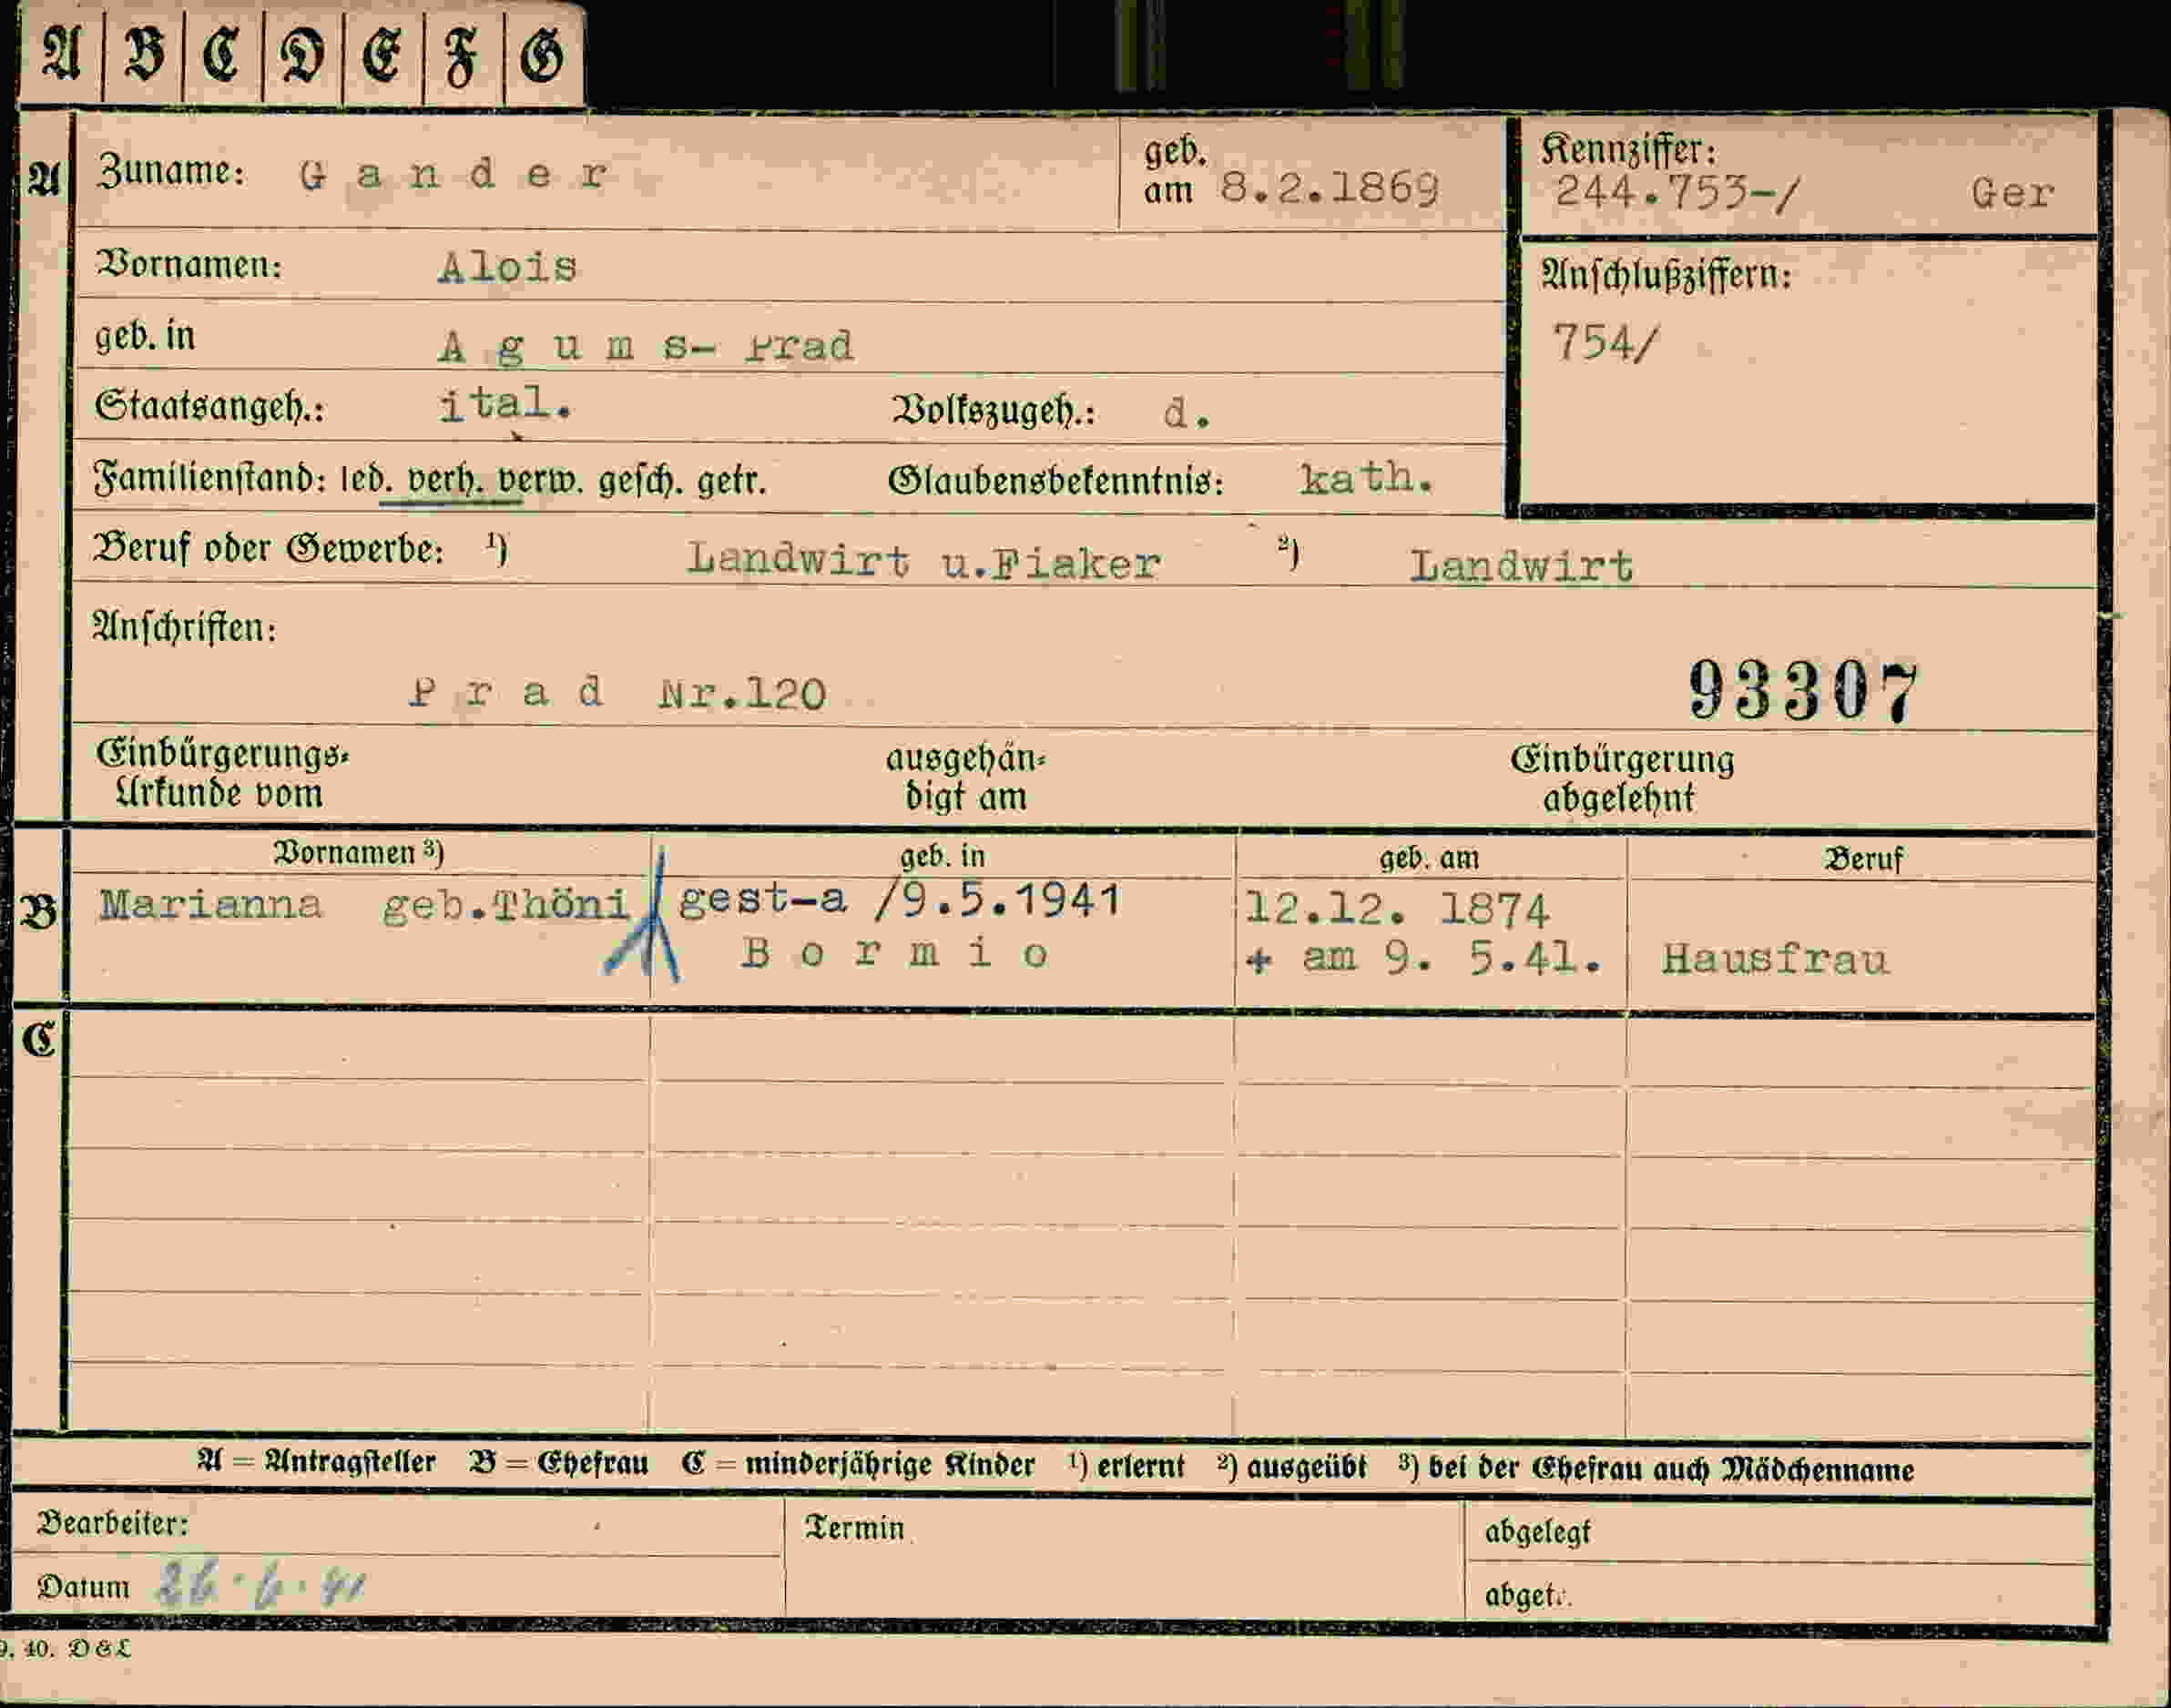 A B C D E F G
A Zuname: Gander geb. am 8.2.1869
Kennziffer: 244.753-/ Ger
Vornamen: Alois
Anschlußziffern:
754/
geb. in Agums- Prad
Staatsangeh.: ital. Volkszugeh.: d.
Familienstand: led. verh. verw. gesch. getr. Glaubensbekenntnis: kath.
Beruf oder Gewerbe: 1) Landwirt u.Fiaker 2) Landwirt
Anschriften:
Prad Nr.120
93307
Einbürgerungs-Urkunde vom
ausgehändigt am
Einbürgerung abgelehnt
Vornamen 3) geb. in geb. am Beruf
B Marianna geb.Thöni gest-a /9.5.1941 12.12. 1874
Bormio + am 9. 5.41. Hausfrau
C
A = Antragsteller B = Ehefrau C = minderjährige Kinder 1) erlernt 2) ausgeübt 3) bei der Ehefrau auch Mädchenname
Bearbeiter: Termin abgelegt
Datum 26.6.41 abgetr.
9. 40. D&L